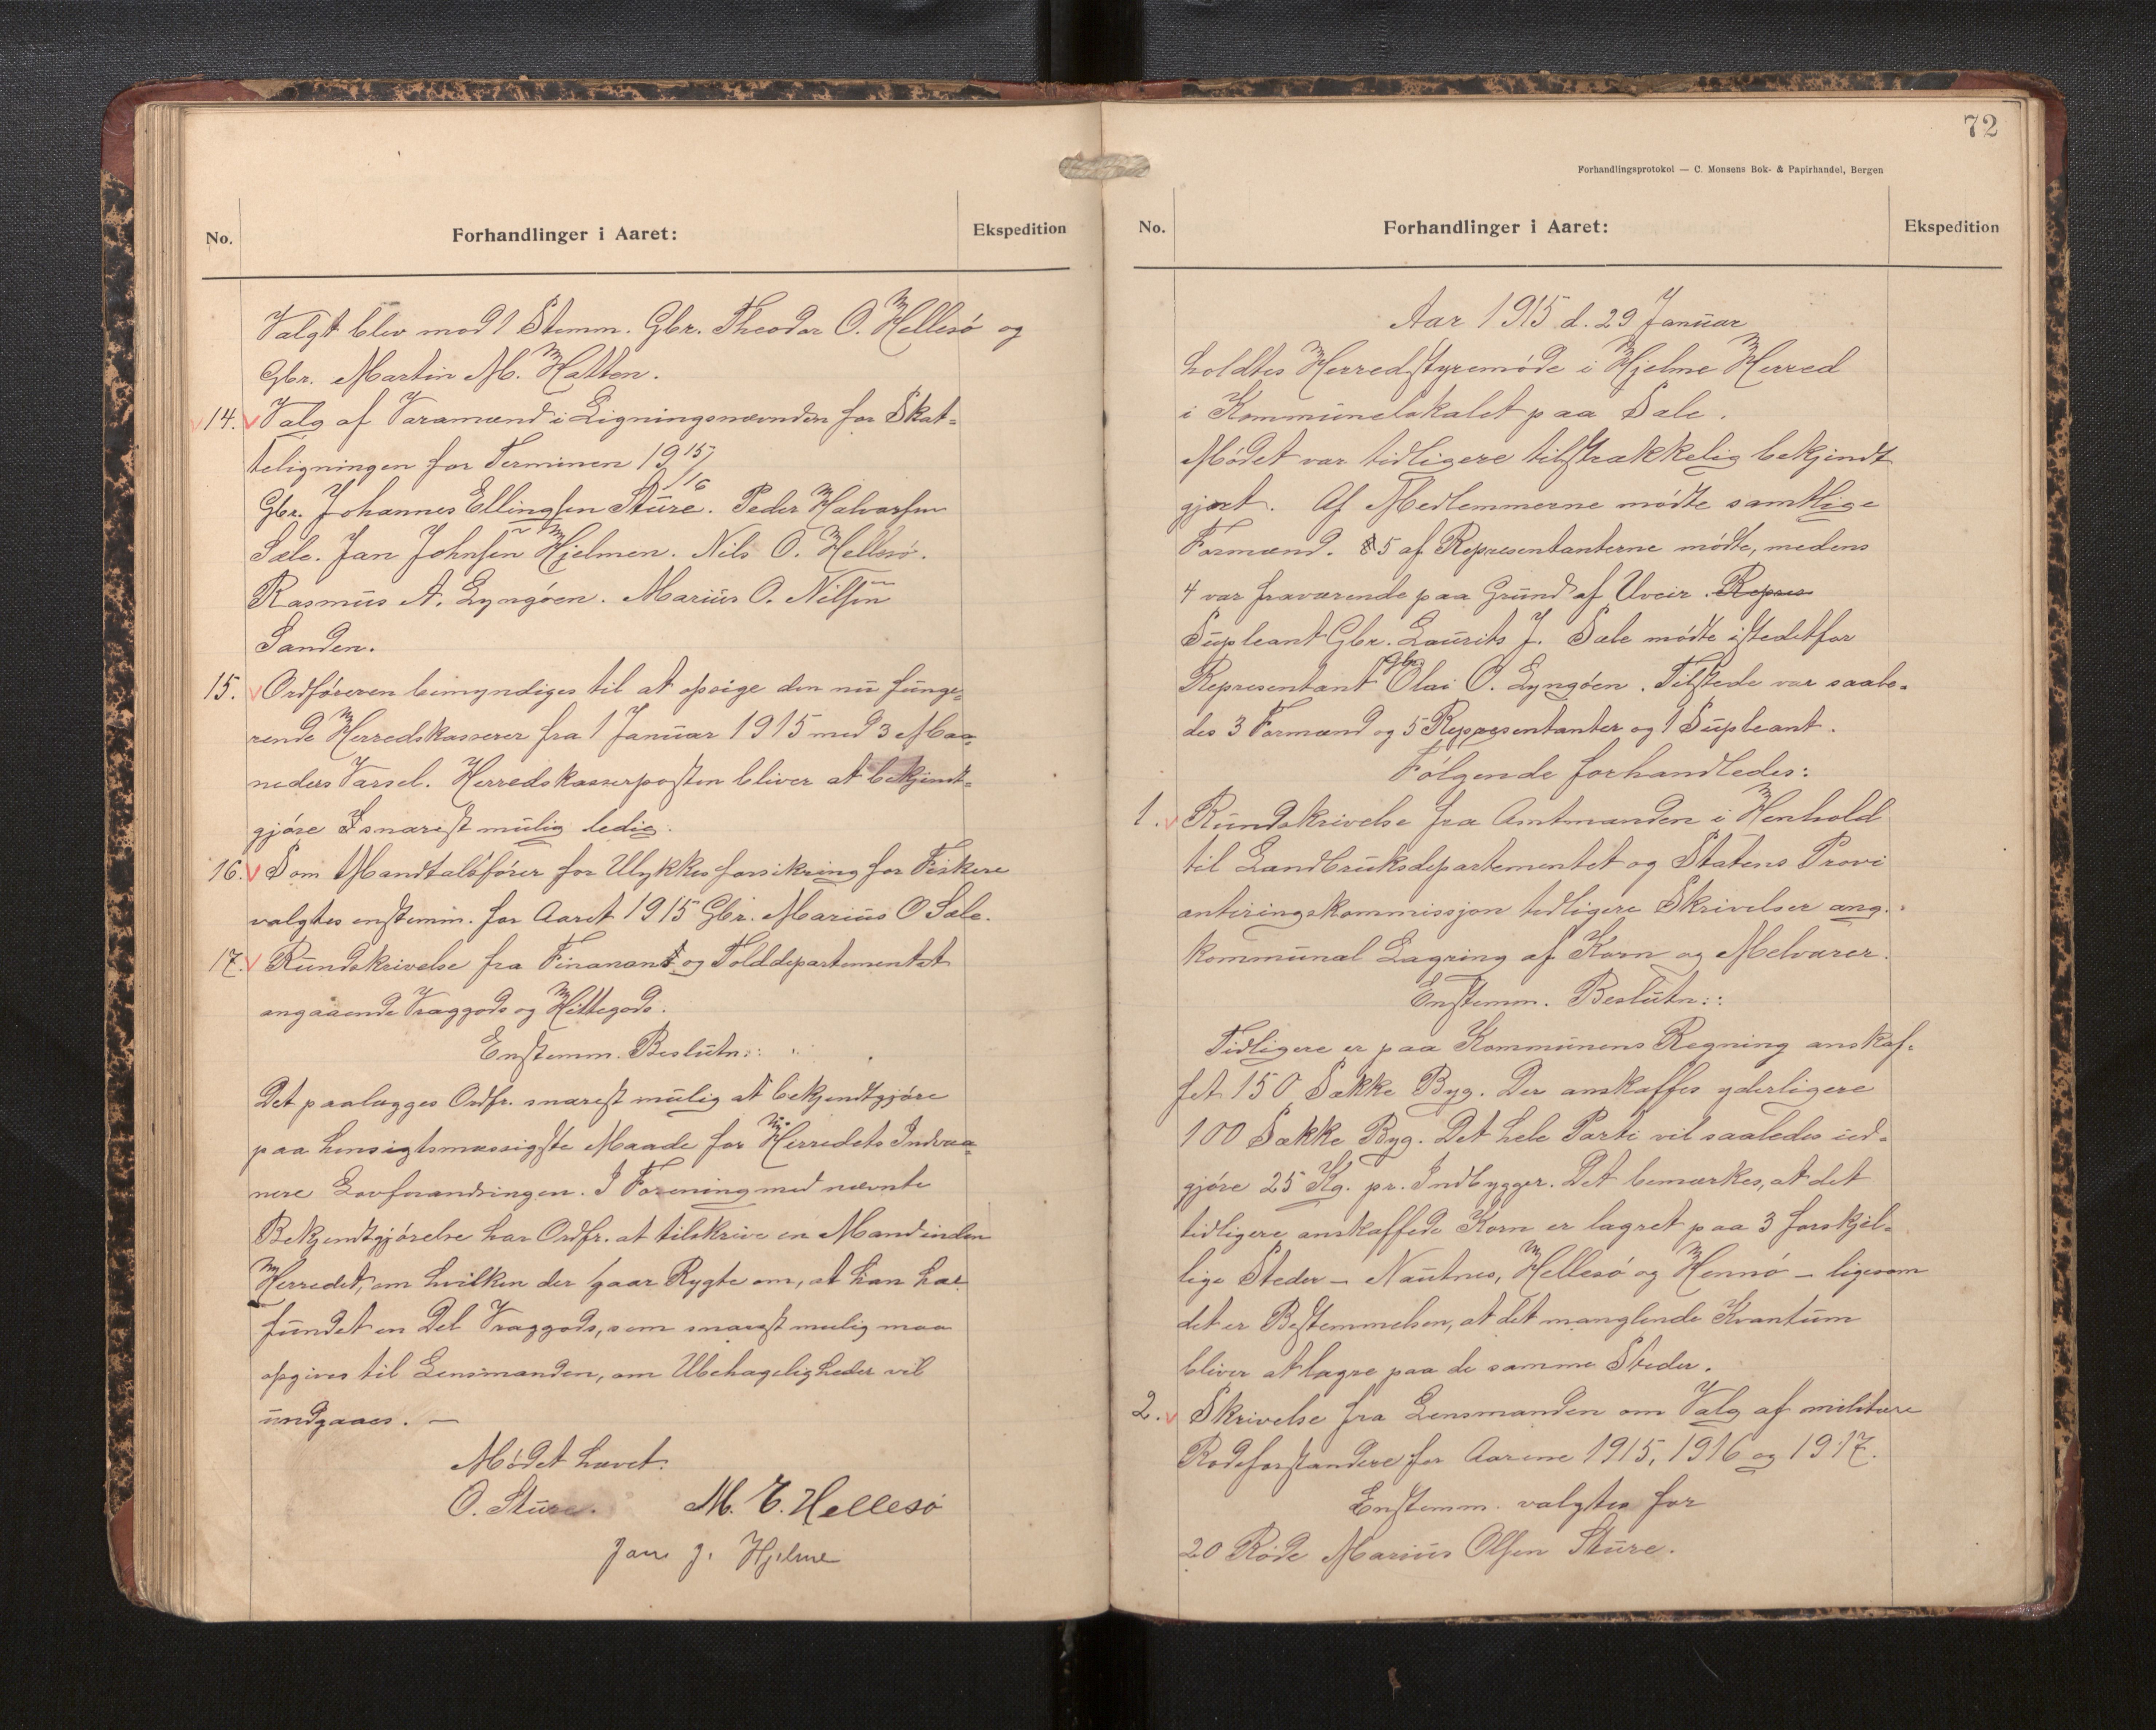 No.
Forhandlinger i Aaret:
Ekspedition
Valgt blev mod 1 Stemm. Gbr. Theodor O. Hellesö og
Gbr. Martin M. Hatten.
14. Valg af Varamænd i Ligningsnævnden for Skat-
teligningen for Terminen 1915/16
Gbr. Johannes Ellingsen Stüre. Peder Halvorsen
Sæle. Jan Johnsen Hjelmen. Nils O. Hellesö.
Rasmüs A. Lyngöen. Mariüs O. Nilsen
Sanden.
15. Ordföreren bemyndiges til at opsige den nü fünge-
rende Herredskasserer fra 1 Janüar 1915 med 3 Maa-
neders Varsel. Herredskasserposten bliver at bekjendt-
gjöre snarest mülig ledig.
16. Som Mandtalsförer for Ulykkesforsikring for Fiskere
valgtes enstemm. for Aaret 1915 Gbr. Mariüs O Sæle.
17. Ründskrivelse fra Finanans og Tolddepartementet
angaaende Vraggods og Hittegods.
Enstemm. Beslütn::
Det paalægges Ordfr. snarest mülig at bekjendtgjöre
paa hensigtsmæssigste Maade for Herredets Indvaa-
nere Lovforandringen. I Forening med nævnte
Bekjendtgjörelse har Ordfr. at tilskrive en Mand inden
Herredet, om hvilken der gaar Rygte om, at han har
fündet en Del Vraggods, som snarest mulig maa
opgives til Lensmanden, om Ubehageligheder vil
ündgaaes. —
Mödet hævet.
O. Stüre. M. E. Hellesö
Jan J. Hjelme
72
Forhandlingsprotokol — C. Monsens Bok- & Papirhandel, Bergen
No.
Forhandlinger i Aaret:
Ekspedition
Aar 1915 d. 29 Janüar
holdtes Herredstyremöde i Hjelme Herred
i Kommünelokalet paa Sæle.
Mödet var tidligere tilstrækkelig bekjendt
gjort. Af Medlemmerne mödte samtlige
Formænd. 5 af Representanterne mödte, medens
4 var fraværende paa Gründ af Uveir. Repres
Süpleant Gbr. Laürits J. Sæle mödte istedetfor
Representant Gbr. Olai O. Lyngöen. Tilstede var saale-
des 3 Formænd og 5 Representanter og 1 Süpleant.
Fölgende forhandledes:
1. Ründskrivelse fra Amtmanden i Henhold
til Landbrüksdepartementet og Statens Provi
anteringskommissjon tidligere Skrivelser ang.
kommünal Lagring af Korn og Melvarer.
Enstemm. Beslütn::
Tidligere er paa Kommünens Regning anskaf-
fet 150 Sække Byg. Der anskaffes yderligere
100 Sække Byg. Det hele Parti vil saaledes üd-
gjöre 25 Kg. pr. Indbygger. Det bemærkes, at det
tidligere anskaffede Korn er lagret paa 3 forskjel-
lige Steder — Naütnes, Hellesö og Hennö — ligesom
det er Bestemmelsen, at det manglende Kvantüm
bliver at lagre paa de samme Steder.
2. Skrivelse fra Lensmanden om Valg af militære
Rodeforstandere for Aarene 1915, 1916 og 1917.
Enstemm. valgtes for
20 Rode Mariüs Olsen Stüre.